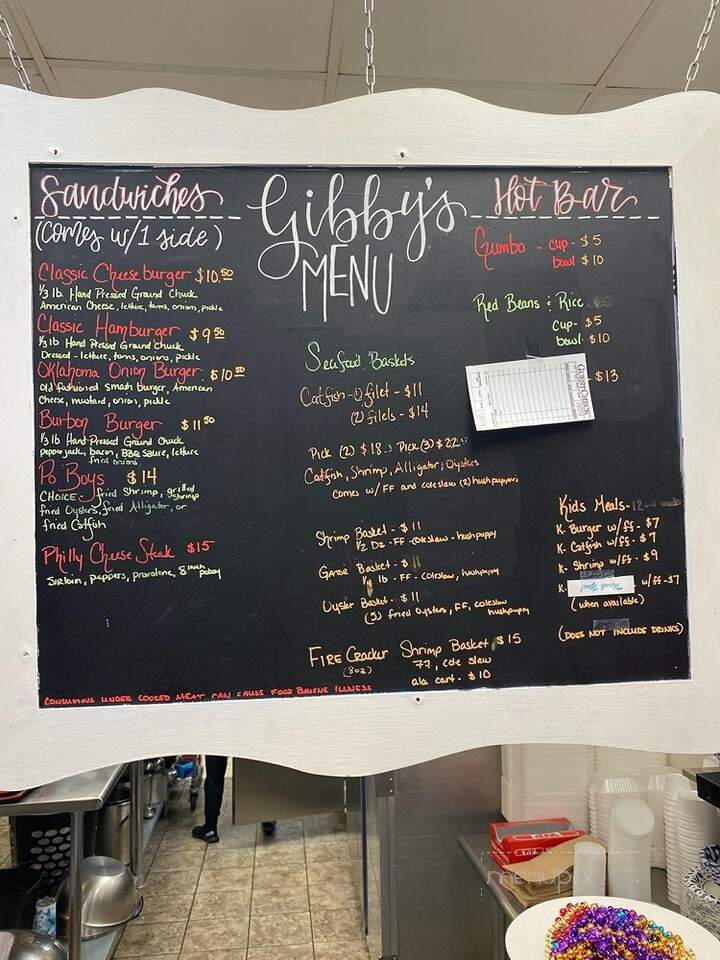 Gibby's
MENU
Sandwiches
(comes w/1 side)
Classic Cheeseburger $10.50
1/3 lb Hand Pressed Ground Chuck
American Cheese, lettuce, toms, onions, pickle
Classic Hamburger $9.50
1/3 lb Hand Pressed Ground Chuck
Dressed - lettuce, toms, onions, pickle
Oklahoma Onion Burger $10.50
Old fashioned Smash burger, American
Cheese, mustard, onion, pickle
Burbon Burger $11.50
1/3 lb Hand Pressed Ground Chuck
pepper jack, bacon, BBQ sauce, lettuce
fried onions
Po Boys $14
CHOICE fried Shrimp, grilled shrimp
fried Oysters, fried Alligator, or
fried Catfish
Philly Cheese Steak $15
Sirloin, peppers, provolone, 8 inch poboy
CONSUMING UNDER COOKED MEAT CAN CAUSE FOOD BOURNE ILLNESS
Seafood Baskets
Catfish - (1) filet - $11
(2) filets - $14
Pick (2) $18.. Pick (3) $22..
Catfish, Shrimp, Alligator, Oysters
comes w/ FF and coleslaw (2) hushpuppies
Shrimp Basket - $11
1/2 Dz - FF - coleslaw - hushpuppy
Gator Basket - $11
lb - FF - coleslaw, hushpuppy
Oyster Basket - $11
(5) fried Oysters, FF, coleslaw
hushpuppy
FIRE Cracker Shrimp Basket $15
(8oz) 77, cole slaw
ala cart - $10
Hot Bar
Gumbo - cup - $5
bowl $10
Red Beans & Rice
cup - $5
bowl $10
$13
Kids Meals -
K- Burger w/ff - $7
K- Catfish w/ff - $7
K- Shrimp w/ff - $9
K- w/ff - $7
(when available)
(DOES NOT INCLUDE DRINKS)
GUEST CHECK
Thank You!
menupix